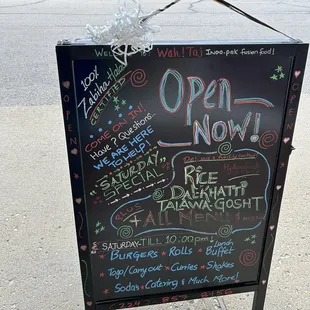 Welcome to Wah! Taj Indo-pak fusion food!
100%
Zabiha Halal
CERTIFIED
OPEN
Open
Now!
COME ON IN!
Have ? Questions
WE ARE HERE
TO HELP!
"SATURDAY"
SPECIAL
RICE
DALKHATTI
TALAWA GOSHT
plus
+ ALL MENU
SATURDAY TILL 10:00pm Lunch
Burgers Rolls Buffet
Togo/Carry out Curries Shakes
Sodas Catering & Much More!